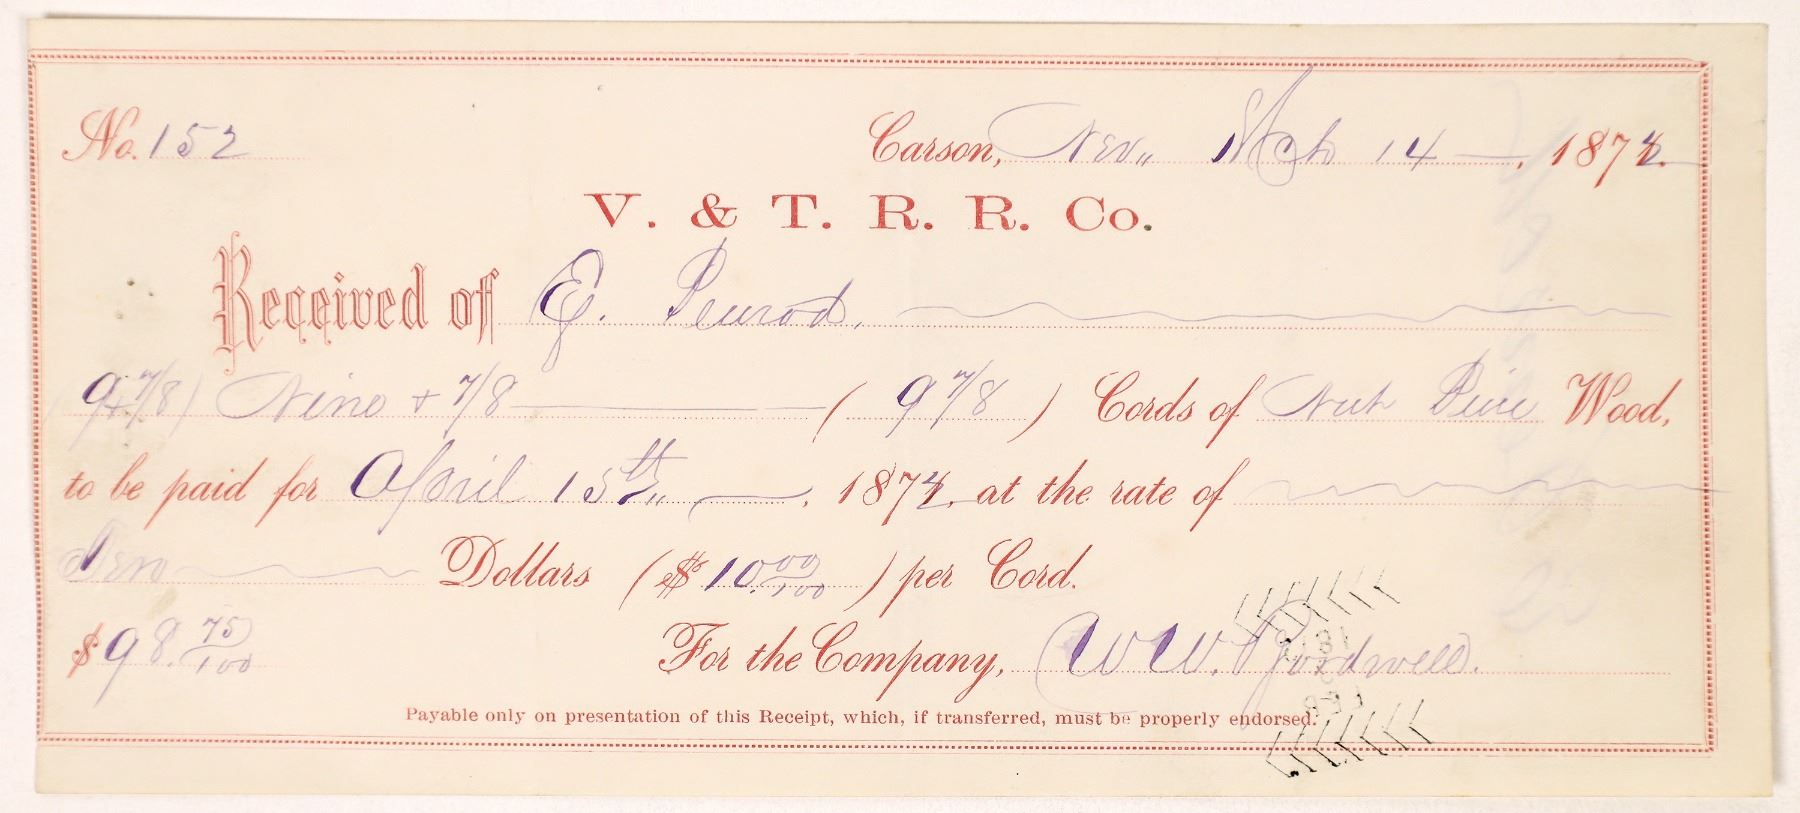 No. 152 Carson, Nev,, Mch 14 — . 1872.
V. & T. R. R. Co.
Received of E. Penrod.
(9 + 7/8) Nine + 7/8 —— ( 9 7/8 ) Cords of Nut Pine Wood,
to be paid for April 15th,, — . 1872. at the rate of
Ten Dollars ($10.00/100 ) per Cord.
$98.75/100 For the Company, W W. Bordwell.
Payable only on presentation of this Receipt, which, if transferred, must be properly endorsed.